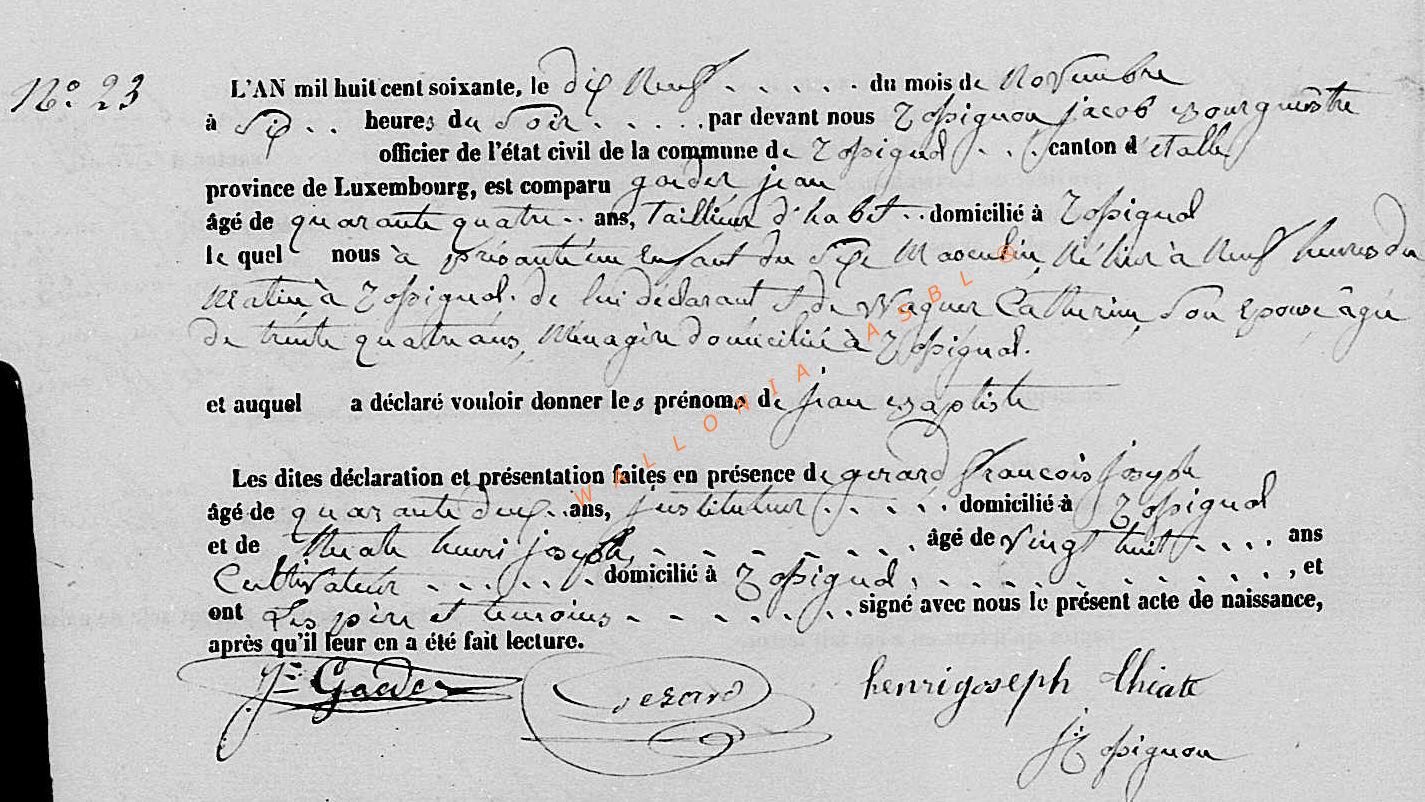 N.° 23
L'AN mil huit cent soixante, le dix Neuf . . . . . du mois de Novembre
à Six . . heures du Soir . . . . . par devant nous Rossignon jacob Bourgmestre
officier de l'état civil de la commune de Rossignol . . . canton d'étalle
province de Luxembourg, est comparu goeder jean
âgé de quarante quatre . . ans, Tailleur d'habit . . domicilié à Rossignol
le quel nous à présenté un enfant du Sexe Masculin, Né hier à Neuf heures du
Matin à Rossignol. de lui déclarant et de Wagner Catherine, Son Epouse âgée
de trente quatre ans, Ménagère domiciliée à Rossignol.
et auquel a déclaré vouloir donner les prénoms de jean Baptiste
Les dites déclaration et présentation faites en présence de gerard françois joseph
âgé de quarante deux . . ans, instituteur . . . . . domicilié à Rossignol
et de thiate henri joseph, . . . . . . . . âgé de vingt huit . . . . ans
Cultivateur . . . . . . domicilié à Rossignol, . . . . . . . . . . . . , et
ont Les père et temoins . . . . . . . signé avec nous le présent acte de naissance,
après qu'il leur en a été fait lecture.
Jn Goeder gerard henri joseph thiate
J Rossignon
WALLONIA ASBL ©